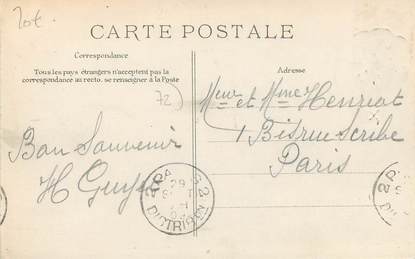 20€
CARTE POSTALE
Correspondance
Tous les pays étrangers n'acceptent pas la
correspondance au recto. se renseigner à la Poste
72
Bon Souvenir
H Guy
Adresse
Meur et Mme Henriot
1 Bis rue Scribe
Paris
DISTRIBON